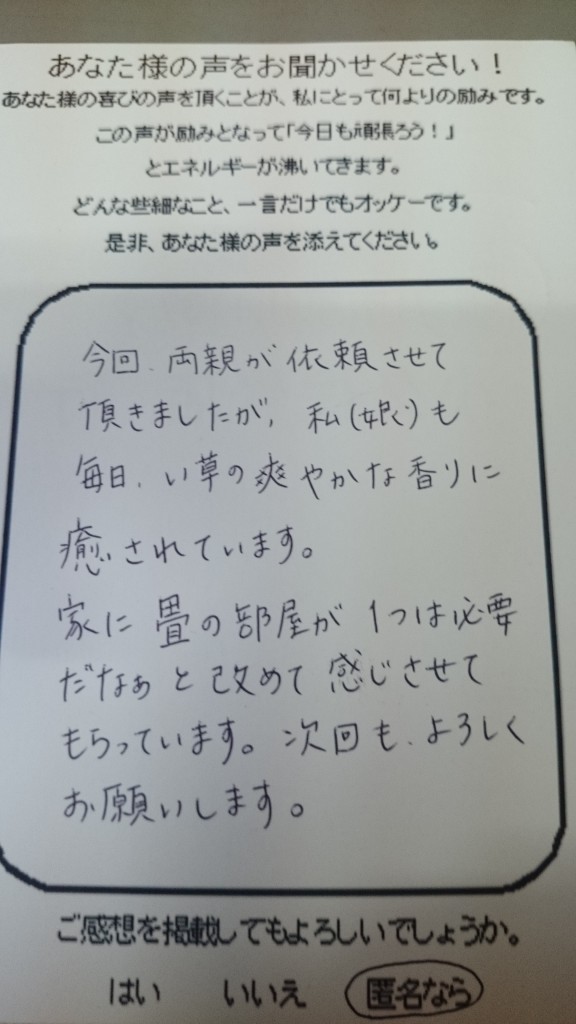 あなた様の声をお聞かせください！
あなた様の喜びの声を頂くことが、私にとって何よりの励みです。
この声が励みとなって「今日も頑張ろう！」
とエネルギーが沸いてきます。
どんな些細なこと、一言だけでもオッケーです。
是非、あなた様の声を添えてください。
今回、両親が依頼させて
頂きましたが、私(娘)も
毎日、い草の爽やかな香りに
癒されています。
家に畳の部屋が1つは必要
だなぁと改めて感じさせて
もらっています。次回も、よろしく
お願いします。
ご感想を掲載してもよろしいでしょうか。
はい いいえ 匿名なら